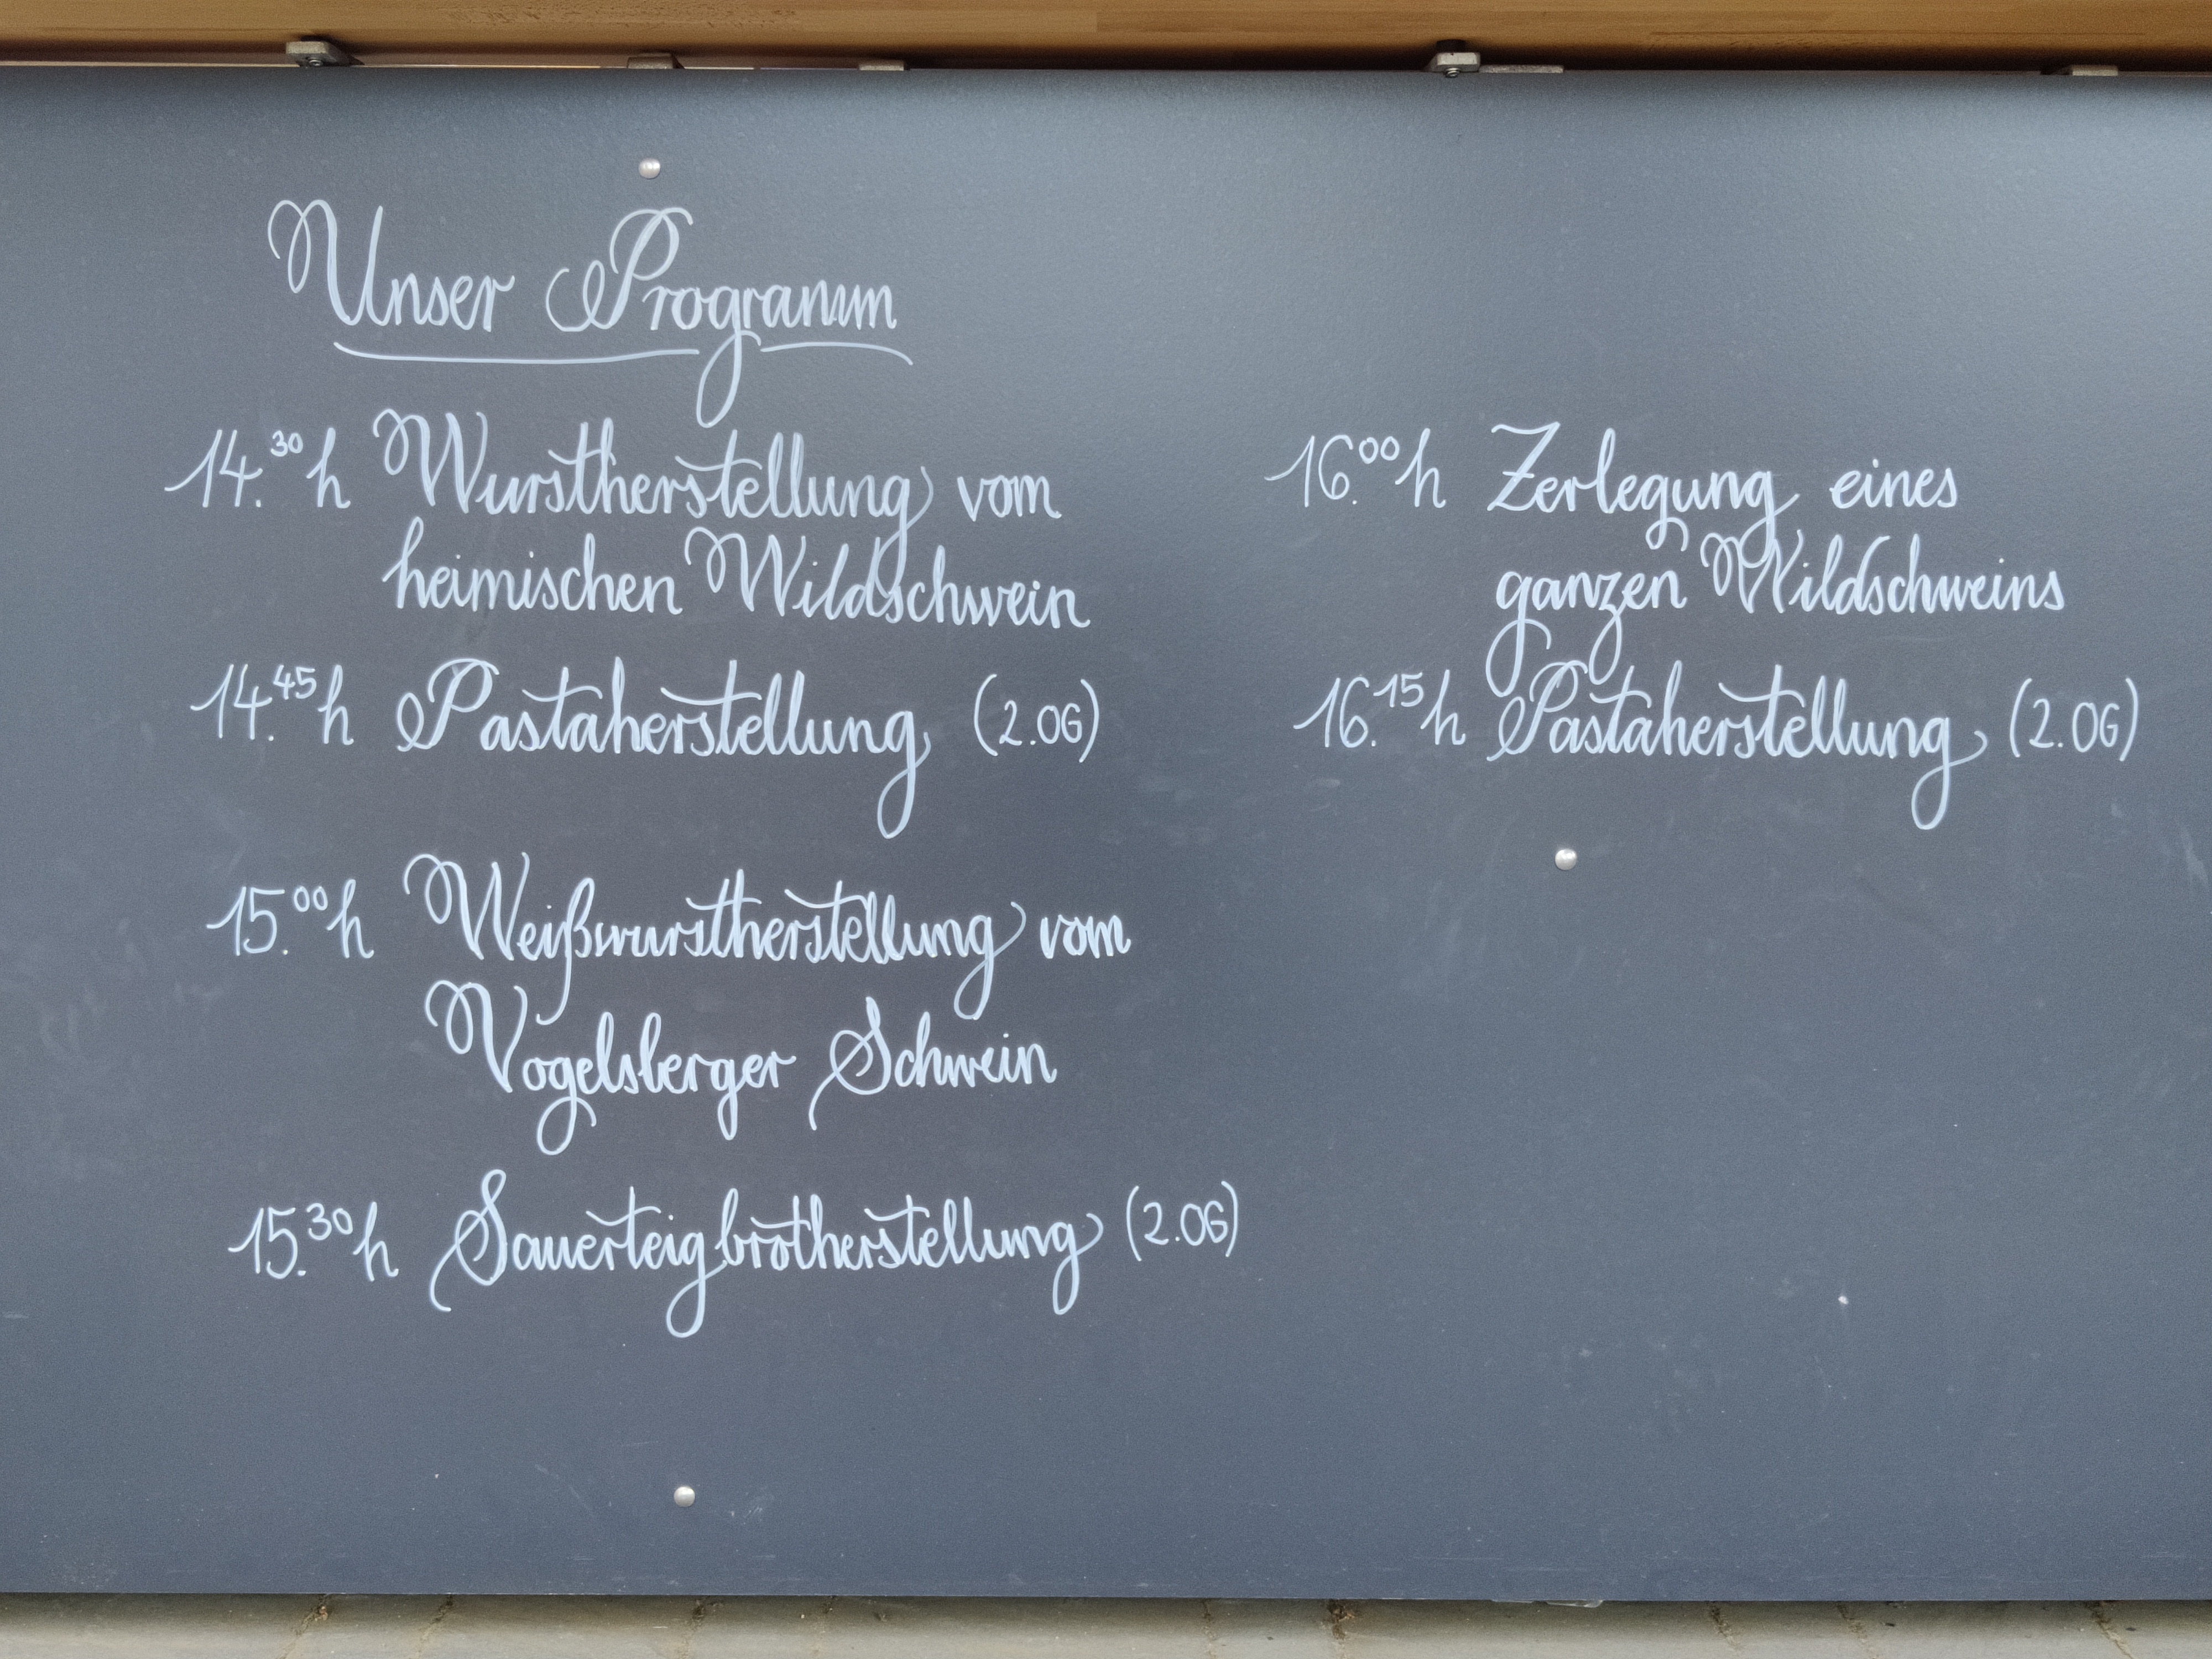 Unser Programm
14.30 h Wurstherstellung vom
heimischen Wildschwein
14.45 h Pastaherstellung (2.OG)
15.00 h Weißwurstherstellung vom
Vogelsberger Schwein
15.30 h Sauerteigbrotherstellung (2.OG)
16.00 h Zerlegung eines
ganzen Wildschweins
16.15 h Pastaherstellung (2.OG)